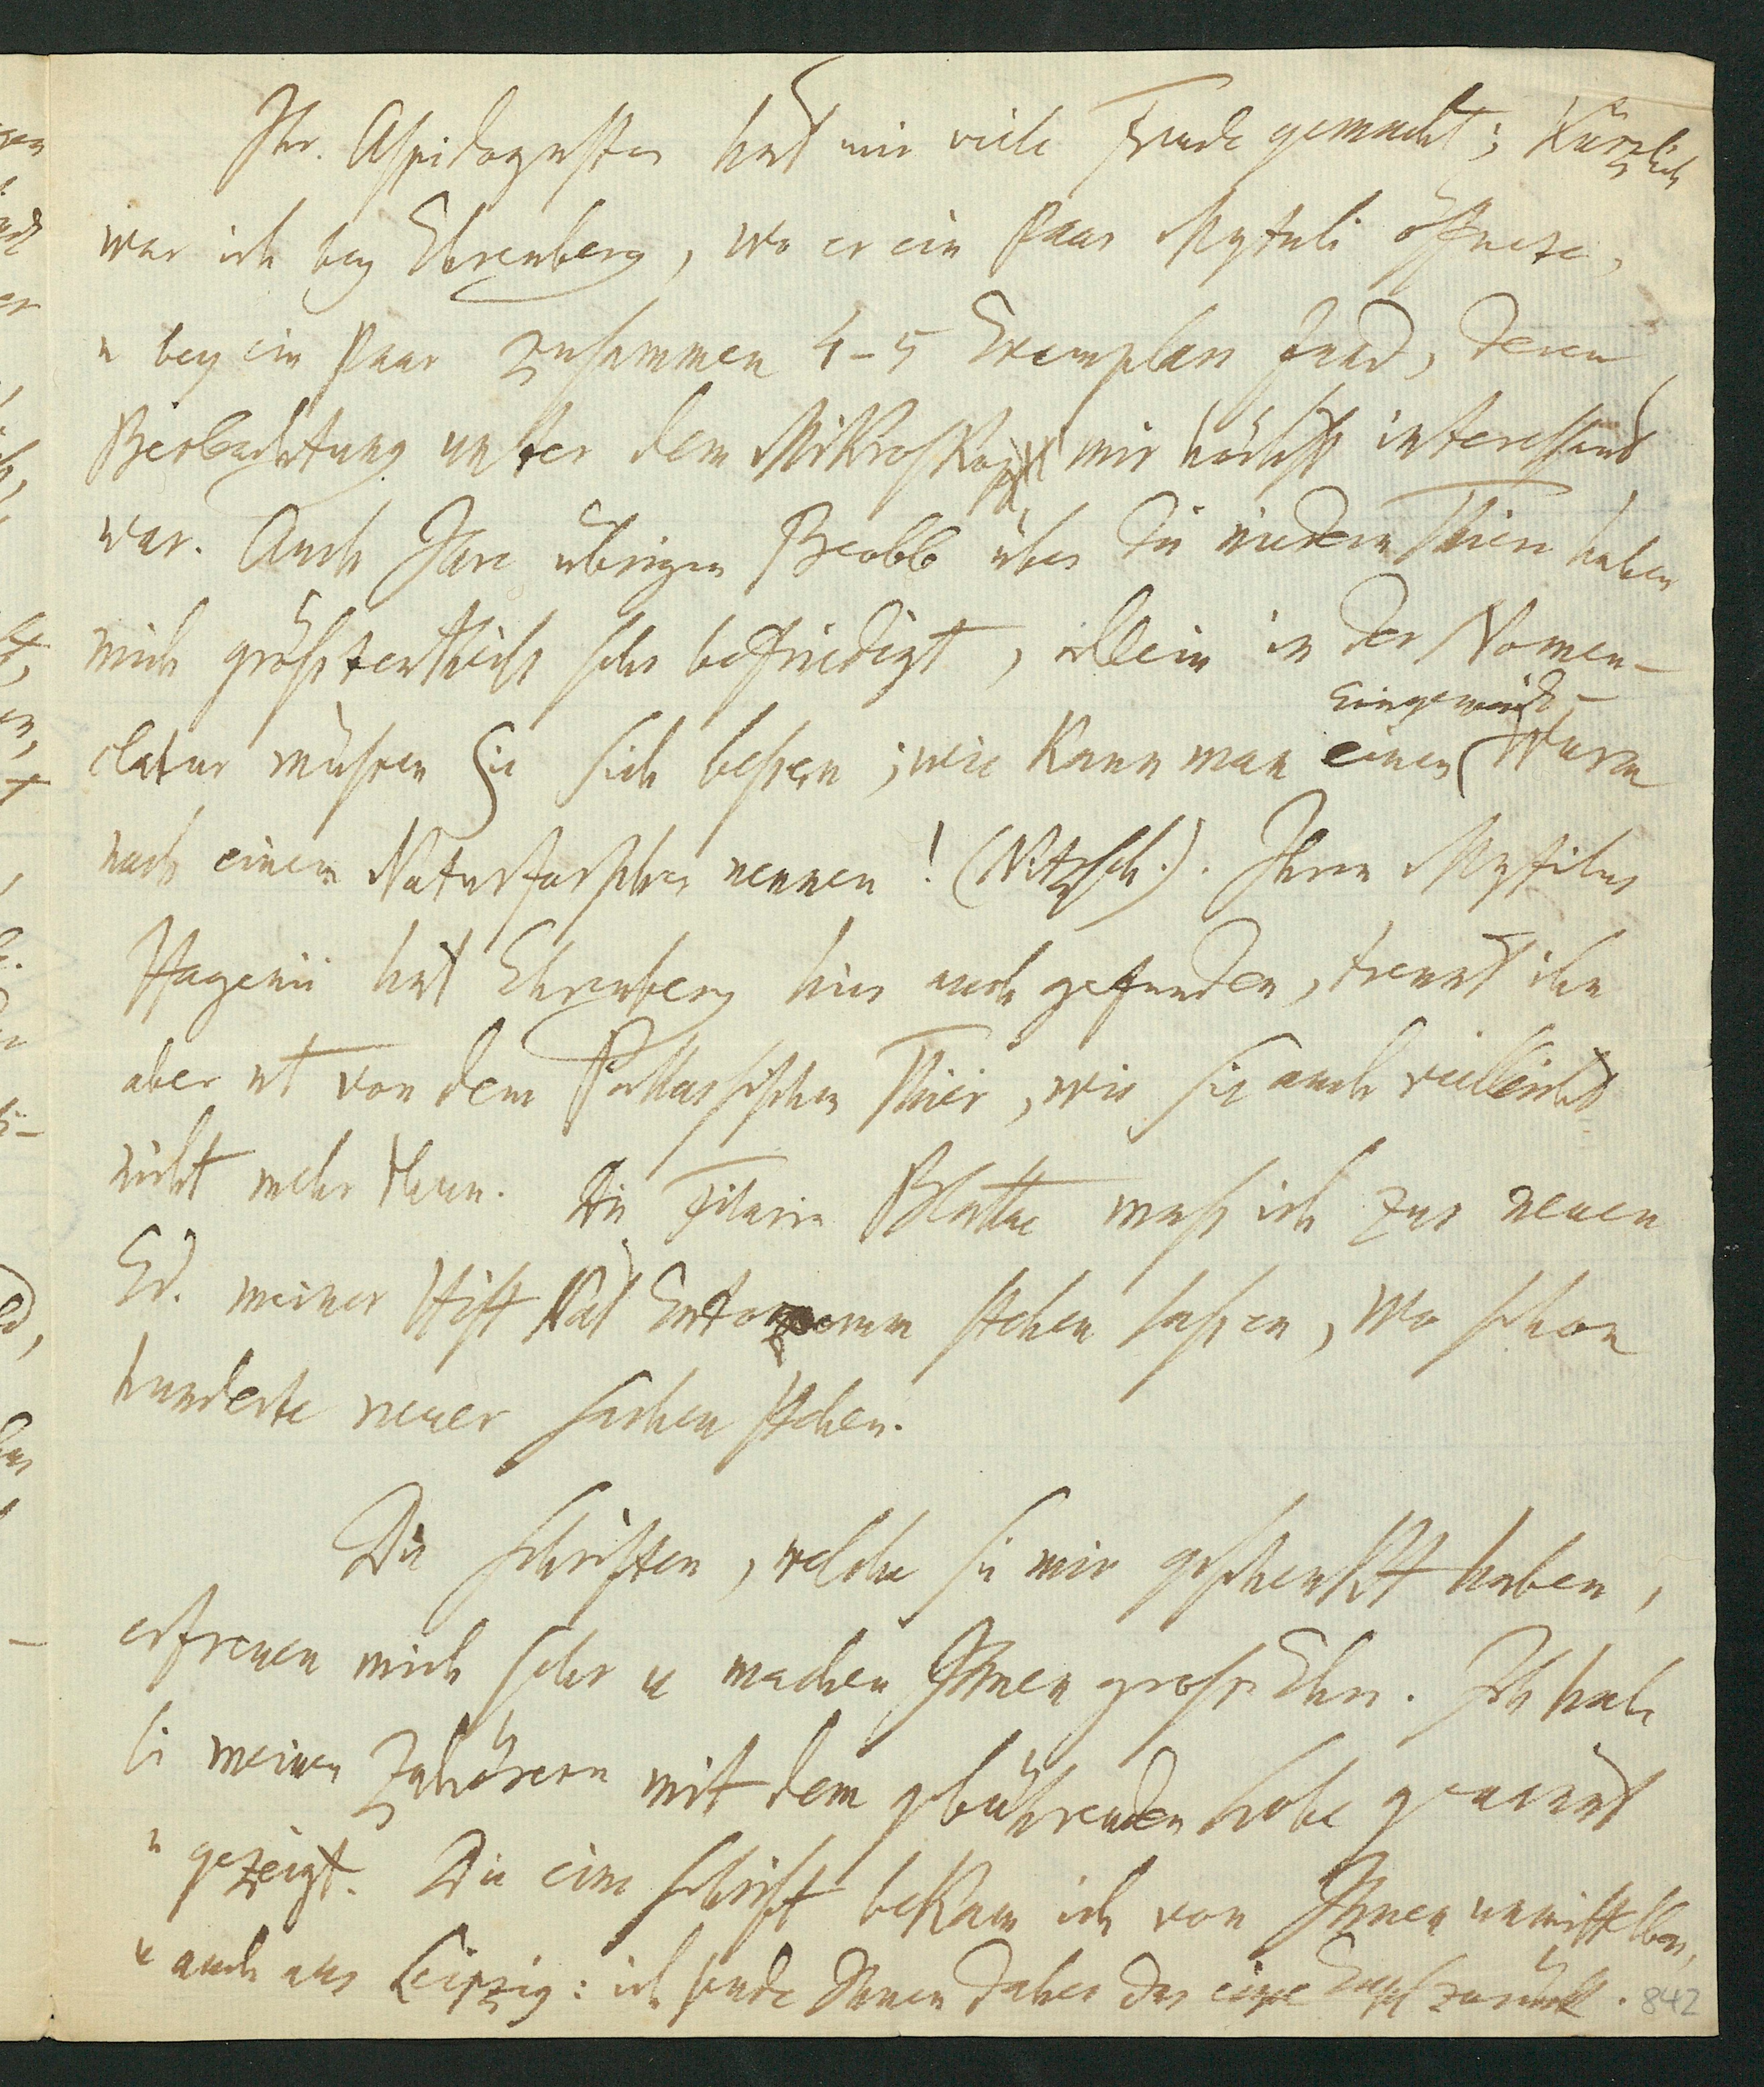 Ihr Aspidogaster hat mir viele Freude gemacht; Kürzlich
war ich bey Ehrenberg, wo er ein Paar Mytuli öffnete,
u bey ein Paar zusammen 4-5 Exemplare fand, deren
Beobachtung unter dem Mikroskop mir höchst interessant
war. Auch Ihre übrigen Beobb über die niedern Thiere haben
mich größtentheils sehr befriedigt, allein in der Nomen-
clatur müssen Sie sich bessern; wie kann man einen Eingeweide-Wurm
nach einem Naturforscher nennen! (Nitzsch.). Ihren Mytilus
Hagenii hat Ehrenberg hier auch gefunden, trennt ihn
aber nt von dem Pallasischen Thier, wie Sie auch vielleicht
nicht mehr thun. Die Filaria Blattae muß ich zur neuen
Ed. meiner Hist Nat Entozoorum stehen lassen, wo schon
hunderte neuer Sachen stehen.
Die Schriften, welche Sie mir geschenkt haben,
erfreuen mich sehr u machen Ihnen große Ehre. Ich habe
sie meinen Zuhörern mit dem gebührenden Lobe genannt
u gezeigt. Die eine Schrift bekam ich von Ihnen unmittelbar,
u auch aus Leipzig: ich sende Ihnen daher das eine Expl zurück.
842